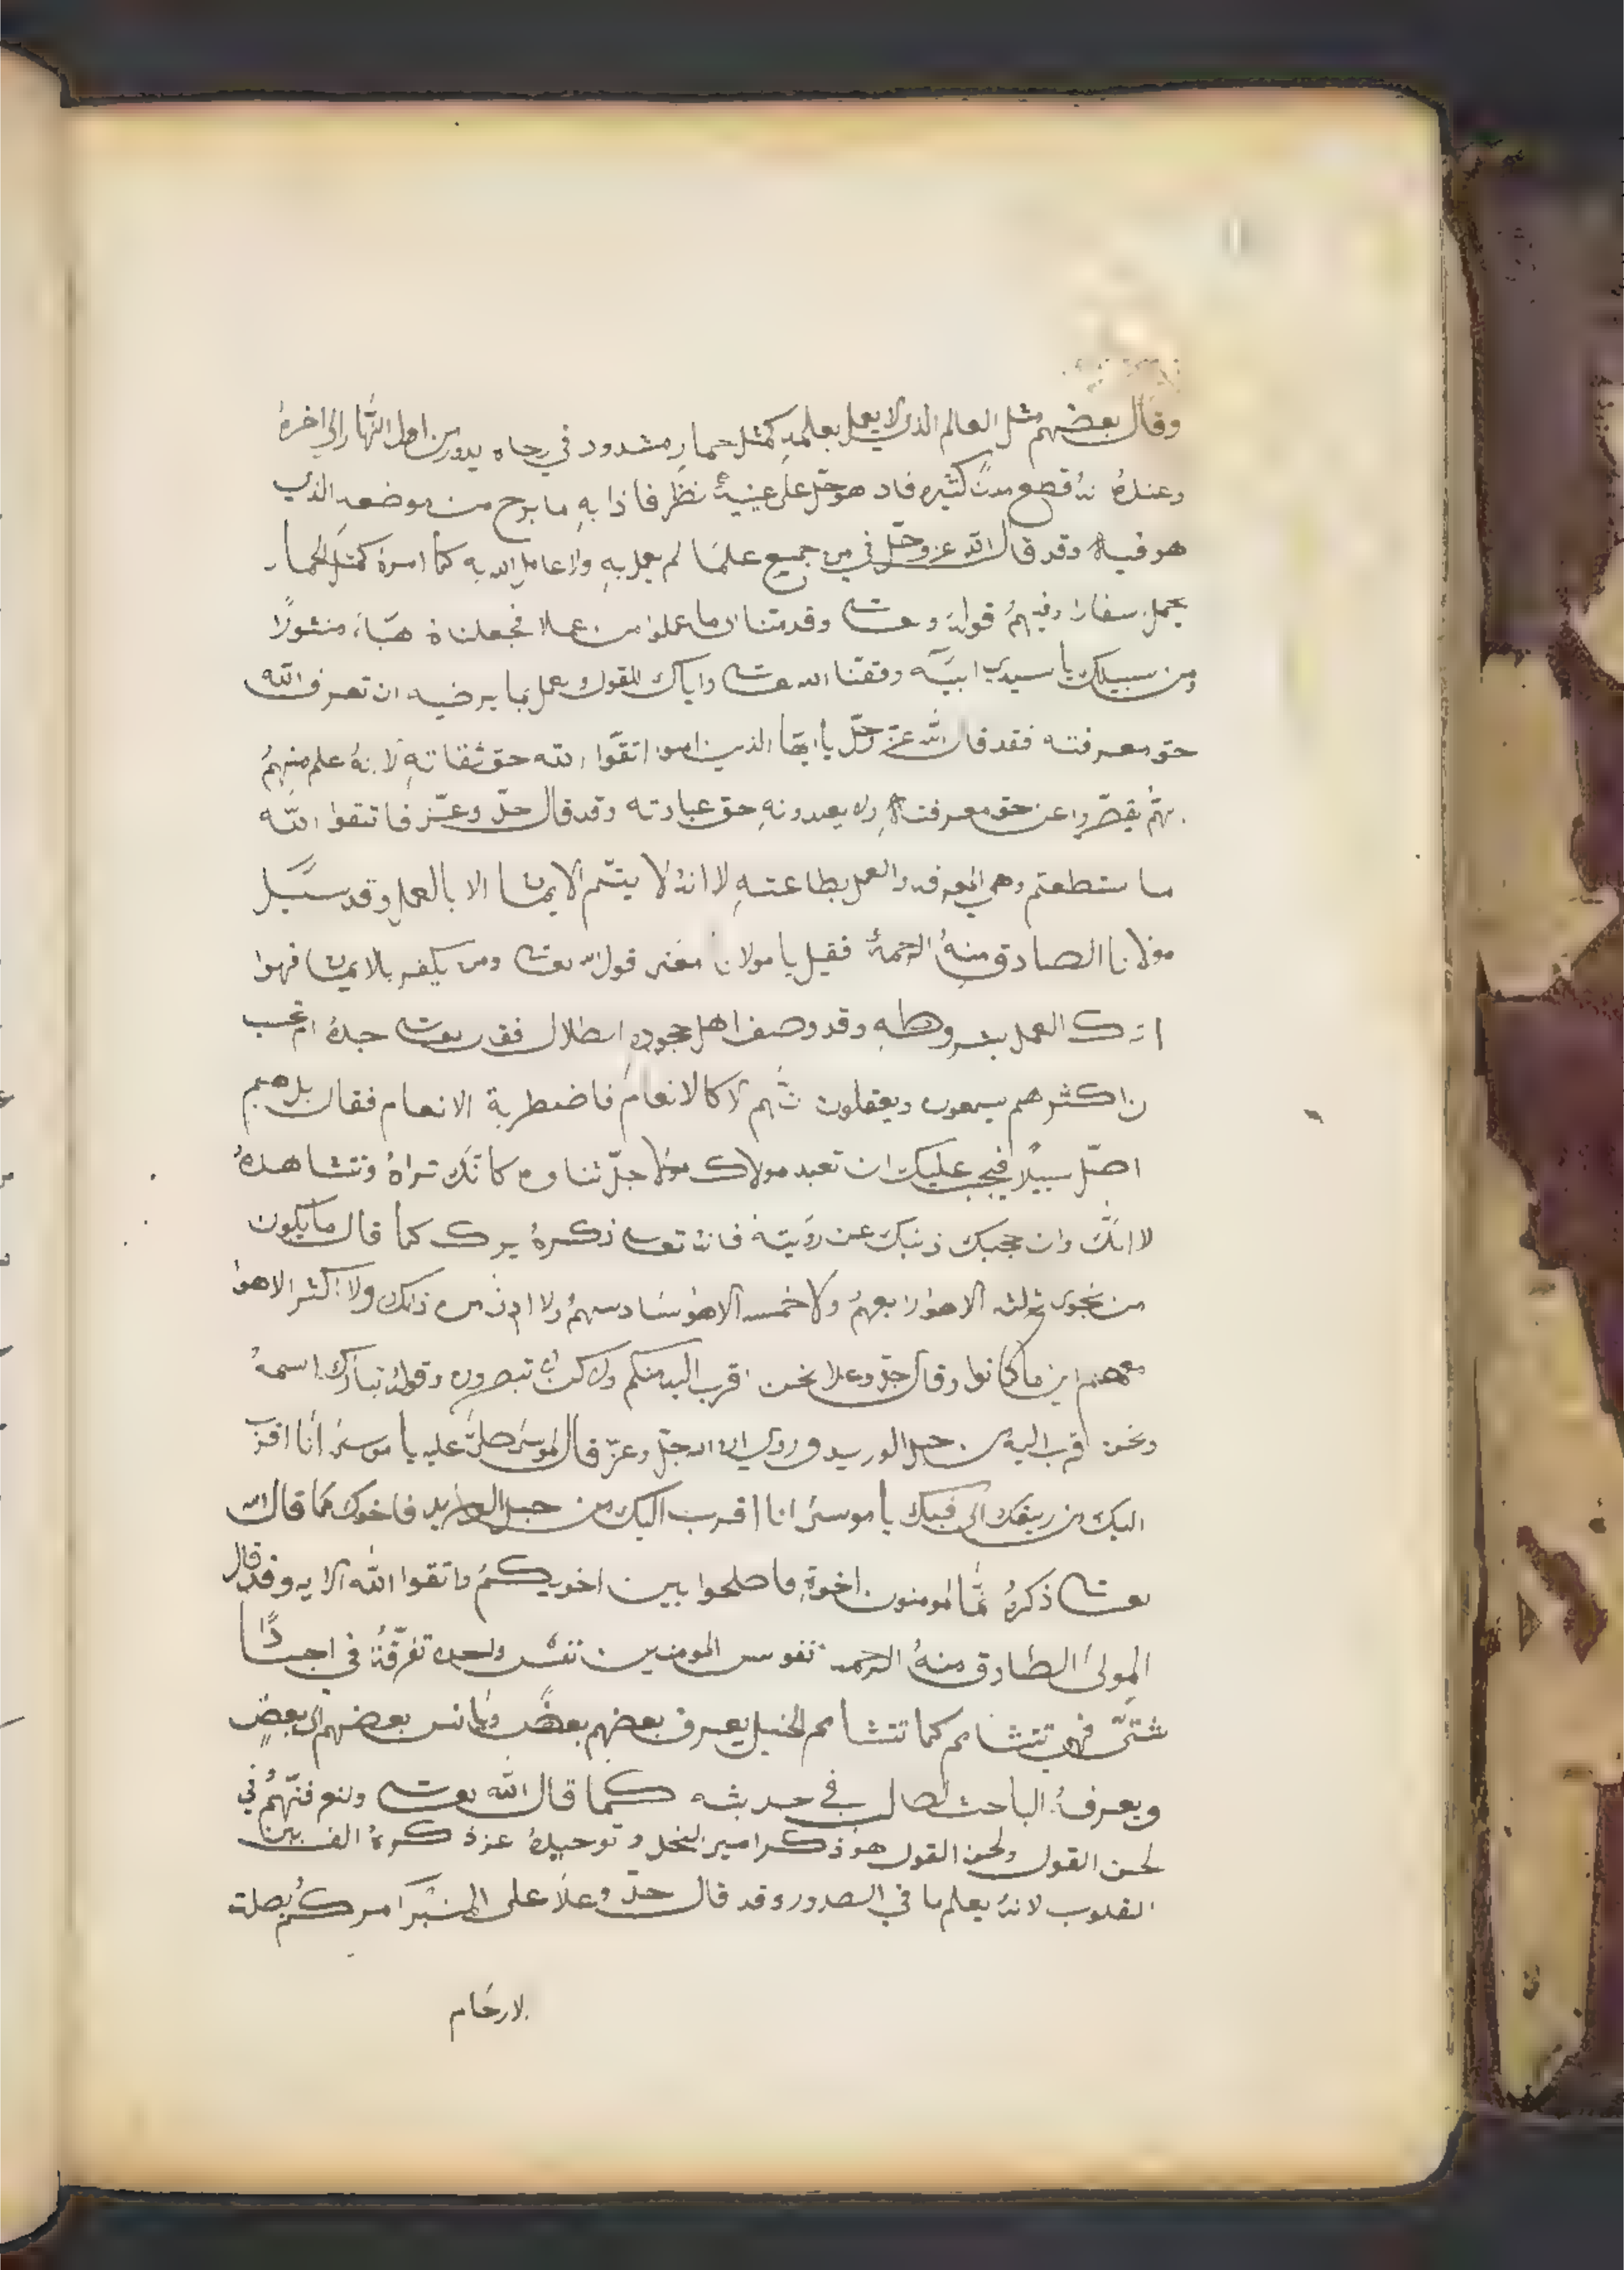 وقال بعضهم مثل العالم الذي لا يعمل بعلمه كمثل حمار مشدود في رحاه يدور من اول النهار الى اخره
وعنده انه قطع مدن كثيره فاد هو حل على عينيه نظر فاذا به ما برح من موضعه الذي
هو فيه وقد قال الله عز وجل في من جميع علما لم يعمل به ولا عامل الله به كما امره كمثل الحمار
يحمل سفارا وفيهم قوله وقدمنا الى ما عملوا من عملا فجعلناه هباء منثورا
ومن سبيلك يا سيدي ابيه وفقنا الله واياك للقول وبعمل بما يرضيه ان تعرف الله
حق معرفته فقد قال الله عز وجل يا ايها الذين امنوا اتقوا الله حق ثقاته لانه علم منهم
انهم يقصروا عن حق معرفته ولا يعبدونه حق عبادته وقد قال جل وعز فاتقوا الله
ما ستطعتم وهي المعرفه والعمل بطاعته لا انه لا يتم الايمان الا بالعمل وقد سيل
مولانا الصادق منه الرحمة فقيل يا مولانا معنى قول الله تعالى ومن يكفر بالايمان فهوا
اترك العمل بشروطه وقد وصف اهل حجوده اضلال فقد تعالى جده ام تحسب
ان اكثرهم يسمعون ويعقلون ثهم لا كالانعام فاضطربة الانعام فقال بل هم
اضل سبيلا فيجب عليك ان تعبد مولاك مولا جل ثناوه كانك تراه وتشاهده
لا انك وان حجبك ذنبك عن رؤيته فانه تعالى ذكره يرك كما قال ما يكون
من نجوى ثلثه الا هو رابعهم ولا خمسه الا هو سادسهم ولا ادنى من ذلك ولا اكثر الا هو
معهم اين ما كانوا وقال جل وعلا نحن اقرب اليه منكم ولاكن لا تبصرون وقوله تبارك اسمه
ونحن اقرب اليه من حبل الوريد وروي ان الله جل وعز قال لموسى صلى عليه يا موسى انا اقرب
اليك من ريقك الى فيك يا موسى انا اقرب اليك من حبل الوريد فاخوك كما قال الله
تعالى ذكره انما المومنون اخوة فاصلحوا بين اخويكم واتقوا الله الايه وقد قال
المولى الصادق منه الرحمه نفوس المومنين نفس واحده تفرقة في اجسادا
شتى فهي تتشامم كما تتشامم الخيل يعرف بعضهم بعض ويانس بعضهم الى بعض
ويعرف الباحث في حديثه كما قال الله تعالى ولتعرفنهم في
لحن القول ولحن القول هو ذكر امير النحل وتوحيده عز ذكره الف بين
القلوب لانه يعلم ما في الصدور وقد قال جل وعلا على المنبر امركم بصلت
الارحام